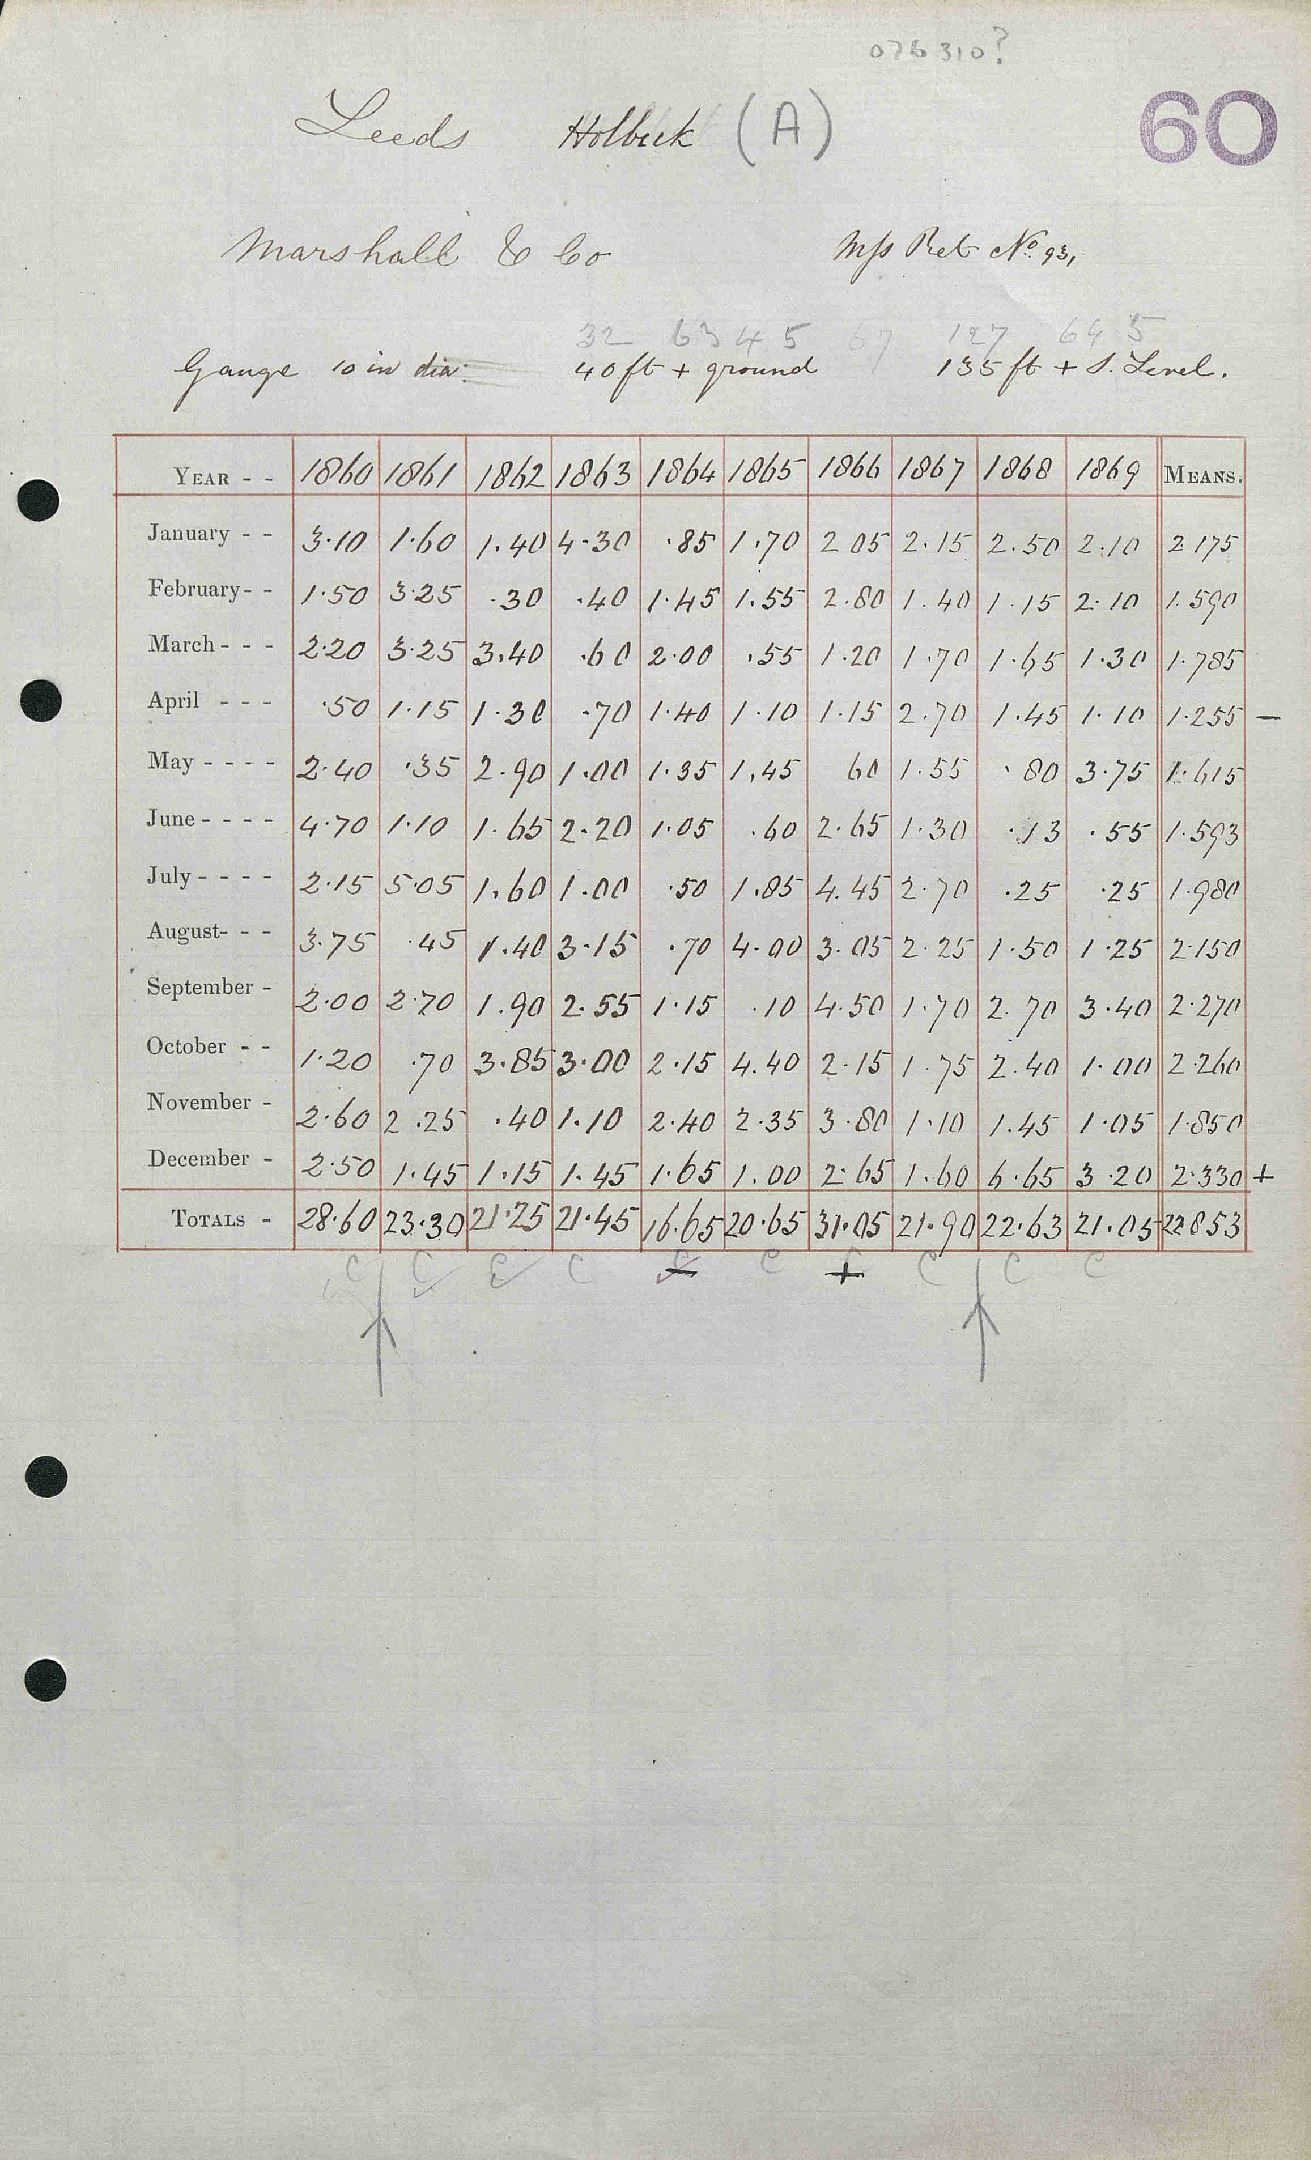 076310?
60
Leeds Holbeck (A)
Marshall & Co Mss Ret No. 93,
32 63 4 5 67 127 64 5
Gauge 10 in dia: 40ft + ground 135 ft + S. Level.
YEAR - - 1860 1861 1862 1863 1864 1865 1866 1867 1868 1869 MEANS.
January - - 3.10 1.60 1.40 4.30 .85 1.70 2 05 2.15 2.50 2.10 2.175
February- - 1.50 3.25 .30 .40 1.45 1.55 2.80 1.40 1.15 2.10 1.590
March - - - 2.20 3.25 3.40 .60 2.00 .55 1.20 1.70 1.65 1.30 1.785
April - - - .50 1.15 1.30 .70 1.40 1.10 1.15 2.70 1.45 1.10 1.255 —
May - - - - 2.40 .35 2.90 1.00 1.35 1.45 60 1.55 .80 3.75 1.615
June - - - - 4.70 1.10 1.65 2.20 1.05 .60 2.65 1.30 .13 .55 1.593
July - - - - 2.15 5.05 1.60 1.00 .50 1.85 4.45 2.70 .25 .25 1.980
August- - - 3.75 .45 1.40 3.15 .70 4.00 3.05 2.25 1.50 1.25 2.150
September - 2.00 2.70 1.90 2.55 1.15 .10 4.50 1.70 2.70 3.40 2.270
October - - 1.20 .70 3.85 3.00 2.15 4.40 2.15 1.75 2.40 1.00 2.260
November - 2.60 2.25 .40 1.10 2.40 2.35 3.80 1.10 1.45 1.05 1.850
December - 2.50 1.45 1.15 1.45 1.65 1.00 2.65 1.60 6.65 3.20 2.330 +
TOTALS - 28.60 23.30 21.25 21.45 16.65 20.65 31.05 21.90 22.63 21.05 22853
C C C C C C C C C C
— +